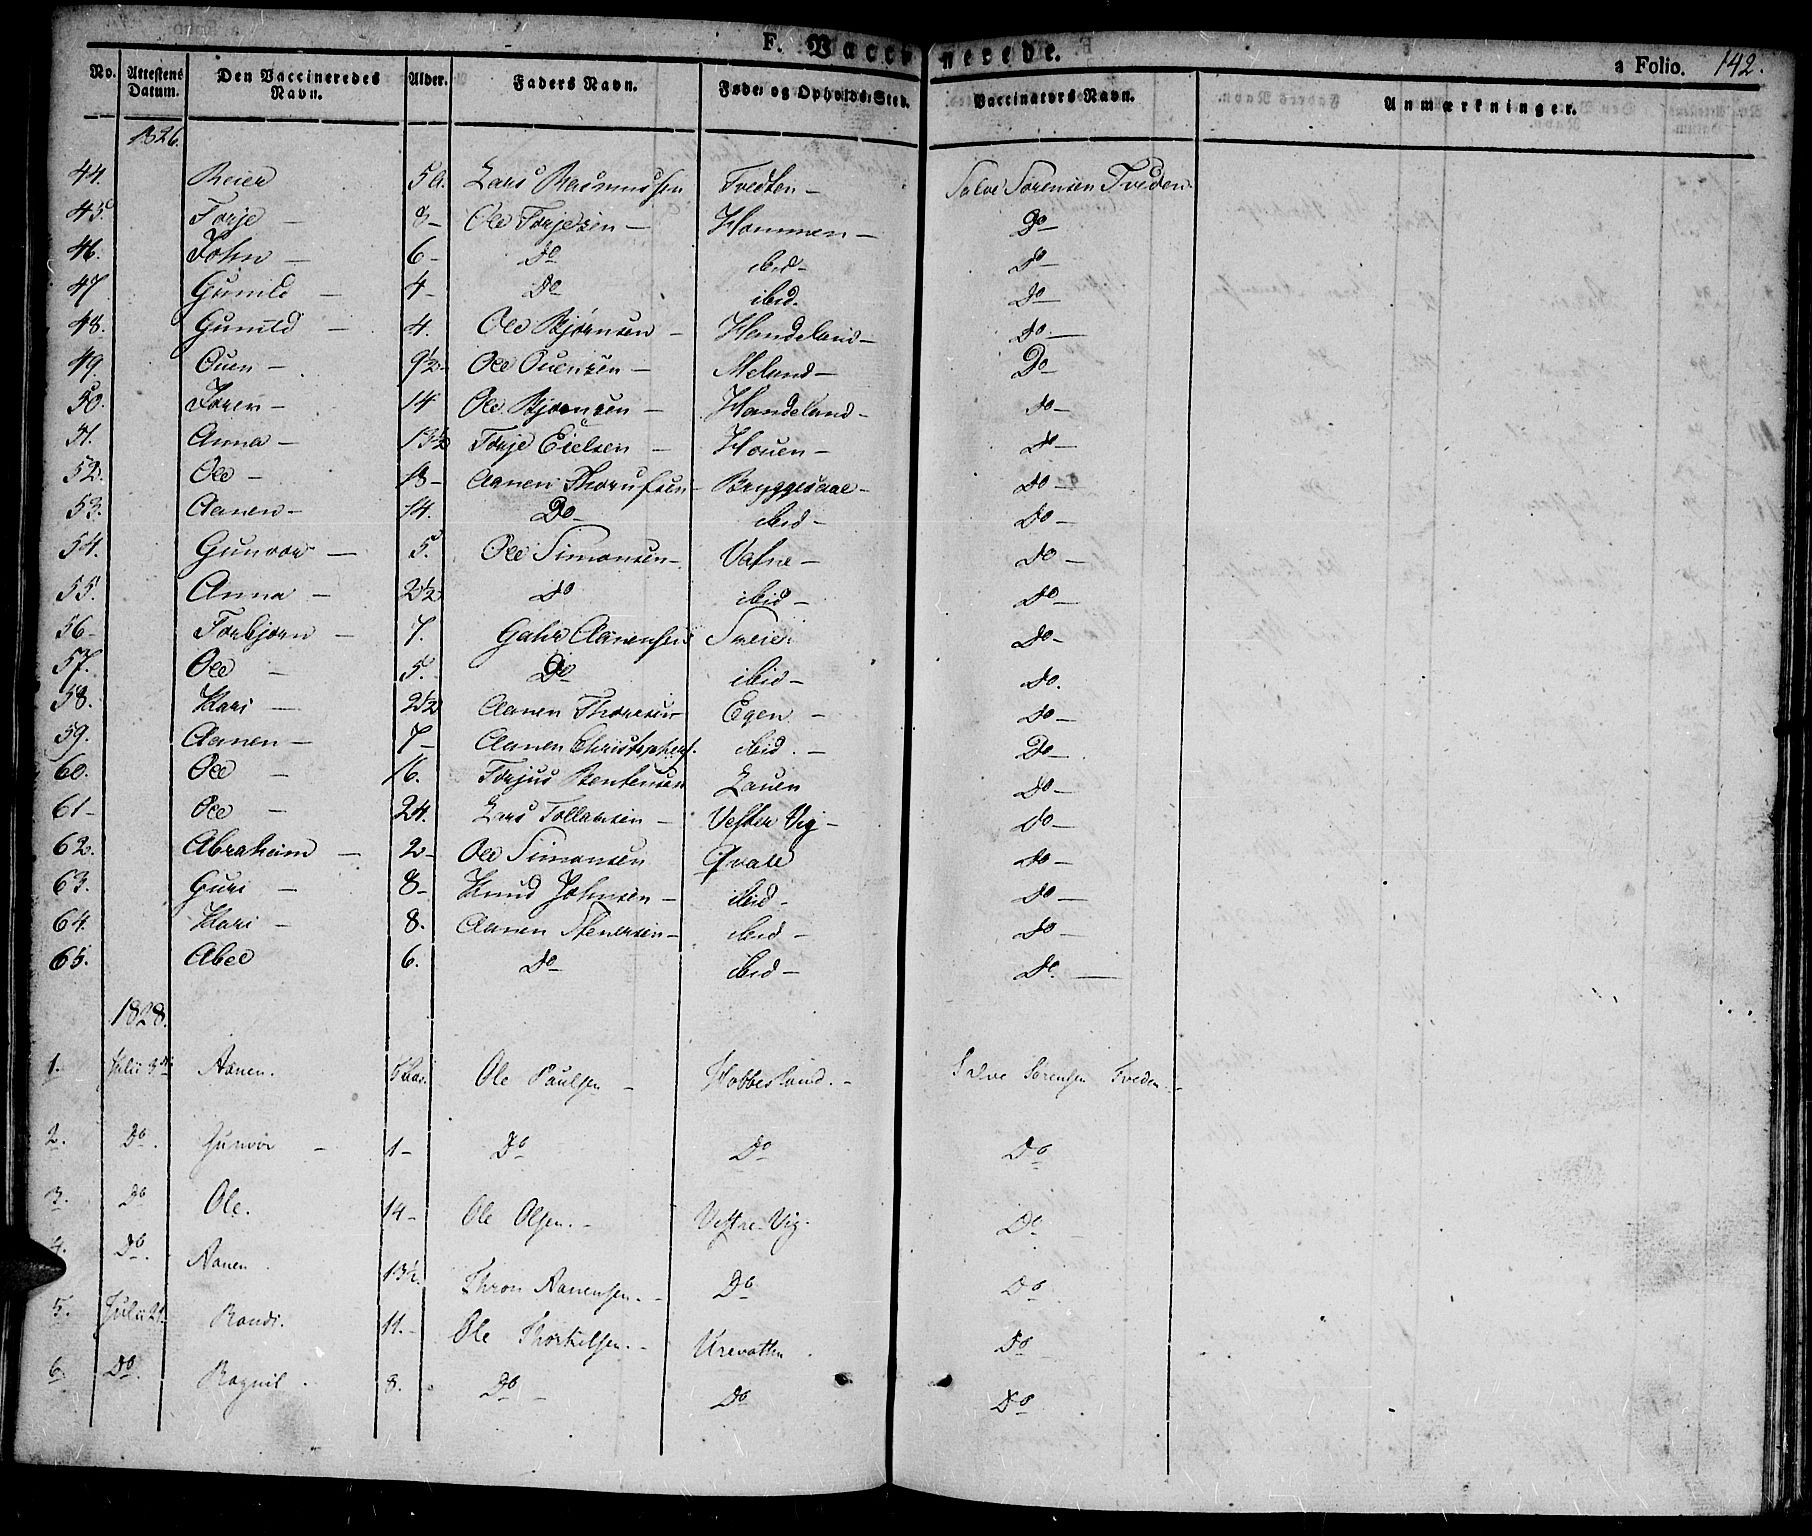 F. Vaccinerede.
a Folio. 142.
No. Attestens Datum. Den Vaccineredes Navn. Alder. Faders Navn. Føde- og Opholds-Sted. Vaccinators Navn. Anmærkninger.
1826.
44. Reier 5 a. Lars Rasmussen Tvedten – Salve Sørensen Tveden.
45. Torje – 8 – Ole Torjesen – Hommen – Do –
46. John – 6 – Do ibid – Do –
47. Gunild – 4 – Do ibid. Do –
48. Gunild – 4. Ole Bjørnsen – Handeland – Do –
49. Ouen – 9½ – Ole Ouensen – Meland – Do –
50. Joren – 14 Ole Bjørnsen – Handeland – Do –
51. Anna – 13½ Torje Eielsen – Houen – Do –
52. Ole – 18 – Aanen Thorufsen – Bryggesaae – Do –
53. Aanen – 14. Do – ibid – Do –
54. Gunvor – 5. Ole Simonsen – Vatne – Do –
55. Anna – 2½ Do ibid – Do –
56 – Torbjørn – 7. Gahr Aanensen Do –
57. Ole – 5. – Do ibid – Do.
58. Kari – 2½ Aanen Thorsen Egen – Do –
59. Aanen – 7 – Aanen Christophers. ibid. – Do –
60. Ole – 16. Torjus Bentensen Lauen Do –
61 – Ole – 24. Lars Tollaksen – Vester Vig – Do –
62. Abraham – 2 – Ole Simonsen Qvale Do –
63. Guri – 8 – Knud Johnsen – ibid – Do –
64. Kari – 8. Aanen Stenersen – ibid – Do –
65. Abel 6. Do – ibid – Do. –
1828.
1. Julii 3die Aanen. Ole Paulsen – Hobbesland. – Salve Sørensen Tveden. –
2. Do. Gunvor – 1 – Do Do Do
3. Do Ole. 14 – Ole Olsen. – Vestre Vig. Do
4. Do. Aanen. 13½. Thron Aanensen. – Do Do
5. Julii 21 Randi. 11. – Ole Thorkelsen. – Urevatten. Do
6. Do. Ragnil. 8. Do – Do Do